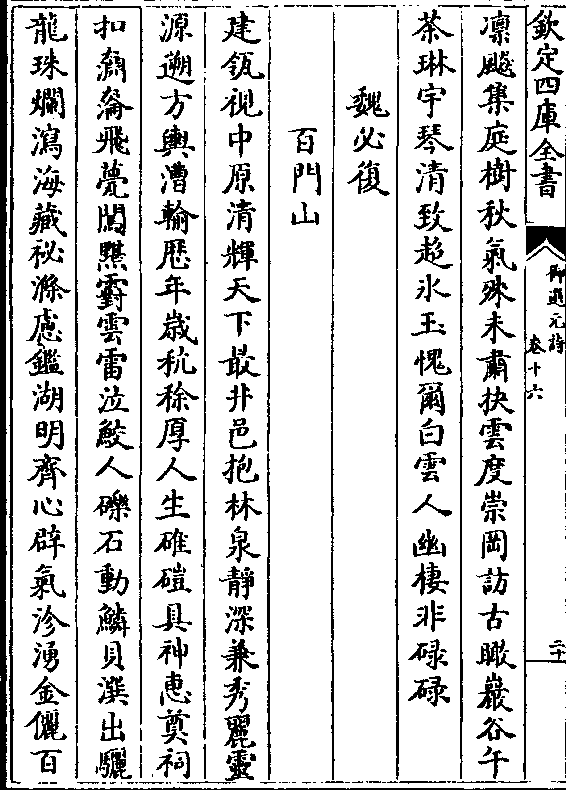 欽定四庫全書
御選元詩
卷十六
二十
凛飇集庭樹秋氣殊未肅抉雲度崇岡訪古瞰巖谷午
茶琳宇琴清致超氷玉愧爾白雲人幽棲非碌碌
魏必復
百門山
建瓴視中原清輝天下最井邑抱林泉靜深兼秀麗靈
源遡方輿漕輸歴年歳秔稌厚人生碓磑具神惠奠祠
扣奫淪飛甍閟黮䨴雲雷泣鮫人礫石動鱗貝濮出驪
龍珠爛瀉海藏祕滌慮鑑湖明齊心辟氣沴湧金儷百